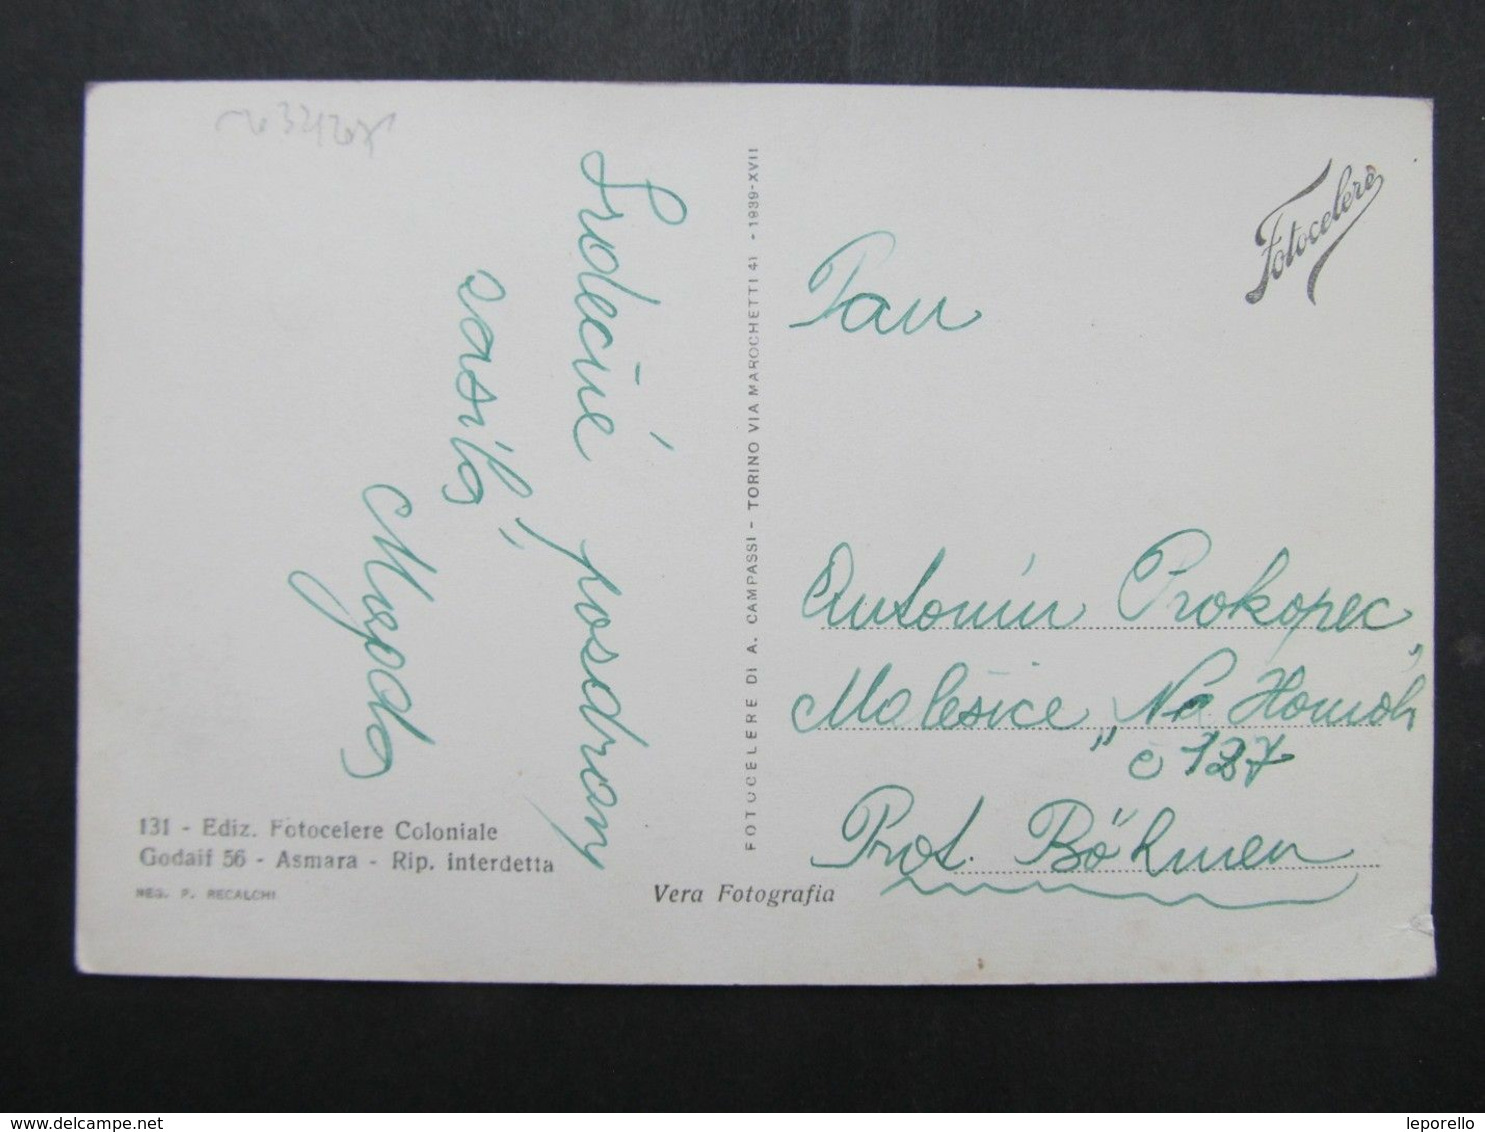 Srdečné pozdravy
zasílá
Magda
131 - Ediz. Fotocelere Coloniale
Godaif 56 - Asmara - Rip. interdetta
NEG. P. RECALCHI
FOTOCELERE DI A. CAMPASSI - TORINO VIA MAROCHETTI 41 - 1939-XVII
Vera Fotografia
Fotocelere
Pan
Antonín Prokopec
Malešice „Na Homoli"
č 127
Prot. Böhmen
leporello